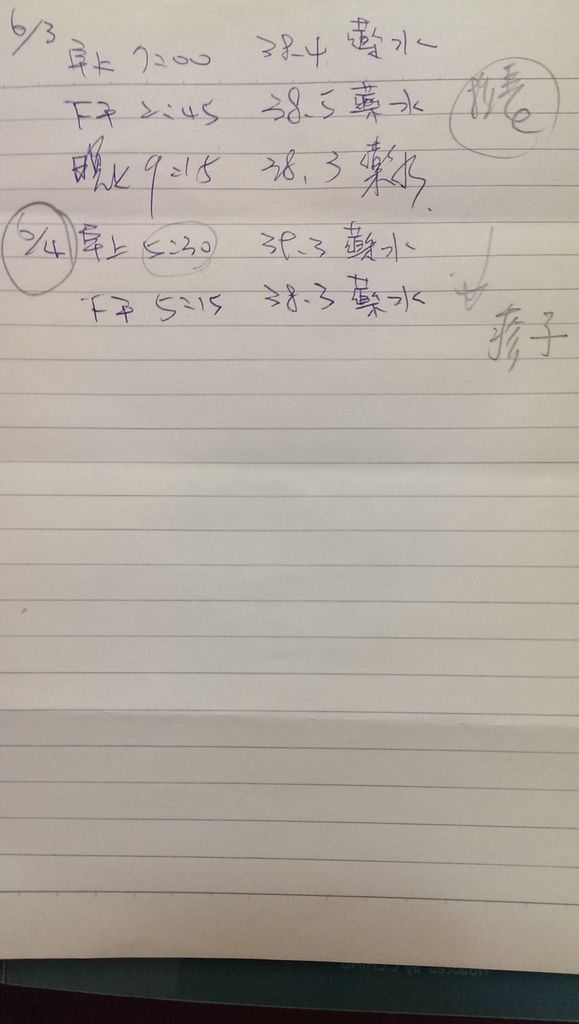 6/3
早上 7:00 38.4 藥水
下午 2:45 38.5 藥水
晚上 9:15 38.3 藥水
6/4 早上 5:30 39.3 藥水
下午 5:15 38.3 藥水
疹子